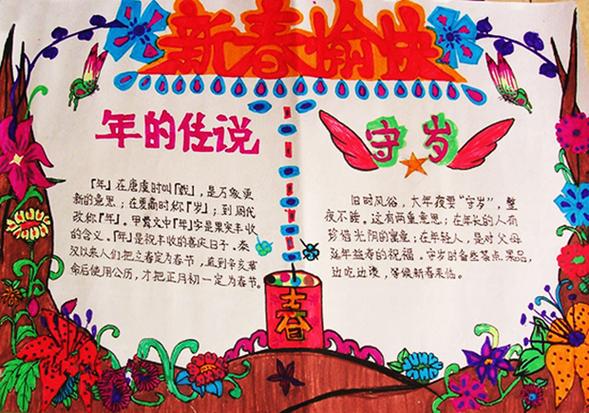 新春愉快
年的传说
『年』在唐虞时叫『载』，是万象更
新的意思；在夏商时称『岁』；到周代
改称『年』。甲骨文中『年』字是果实丰收
的含义。『年』是祝丰收的喜庆日子。秦
汉以来人们把立春定为春节，直到辛亥革
命后使用公历，才把正月初一定为春节。
守岁
旧时风俗，大年夜要“守岁”，整
夜不睡，这有两重意思：在年长的人有
珍惜光阴的寓意；在年轻人，是对父母
延年益寿的祝福。守岁时备些茶点果品，
边吃边谈，等候新春来临。
春